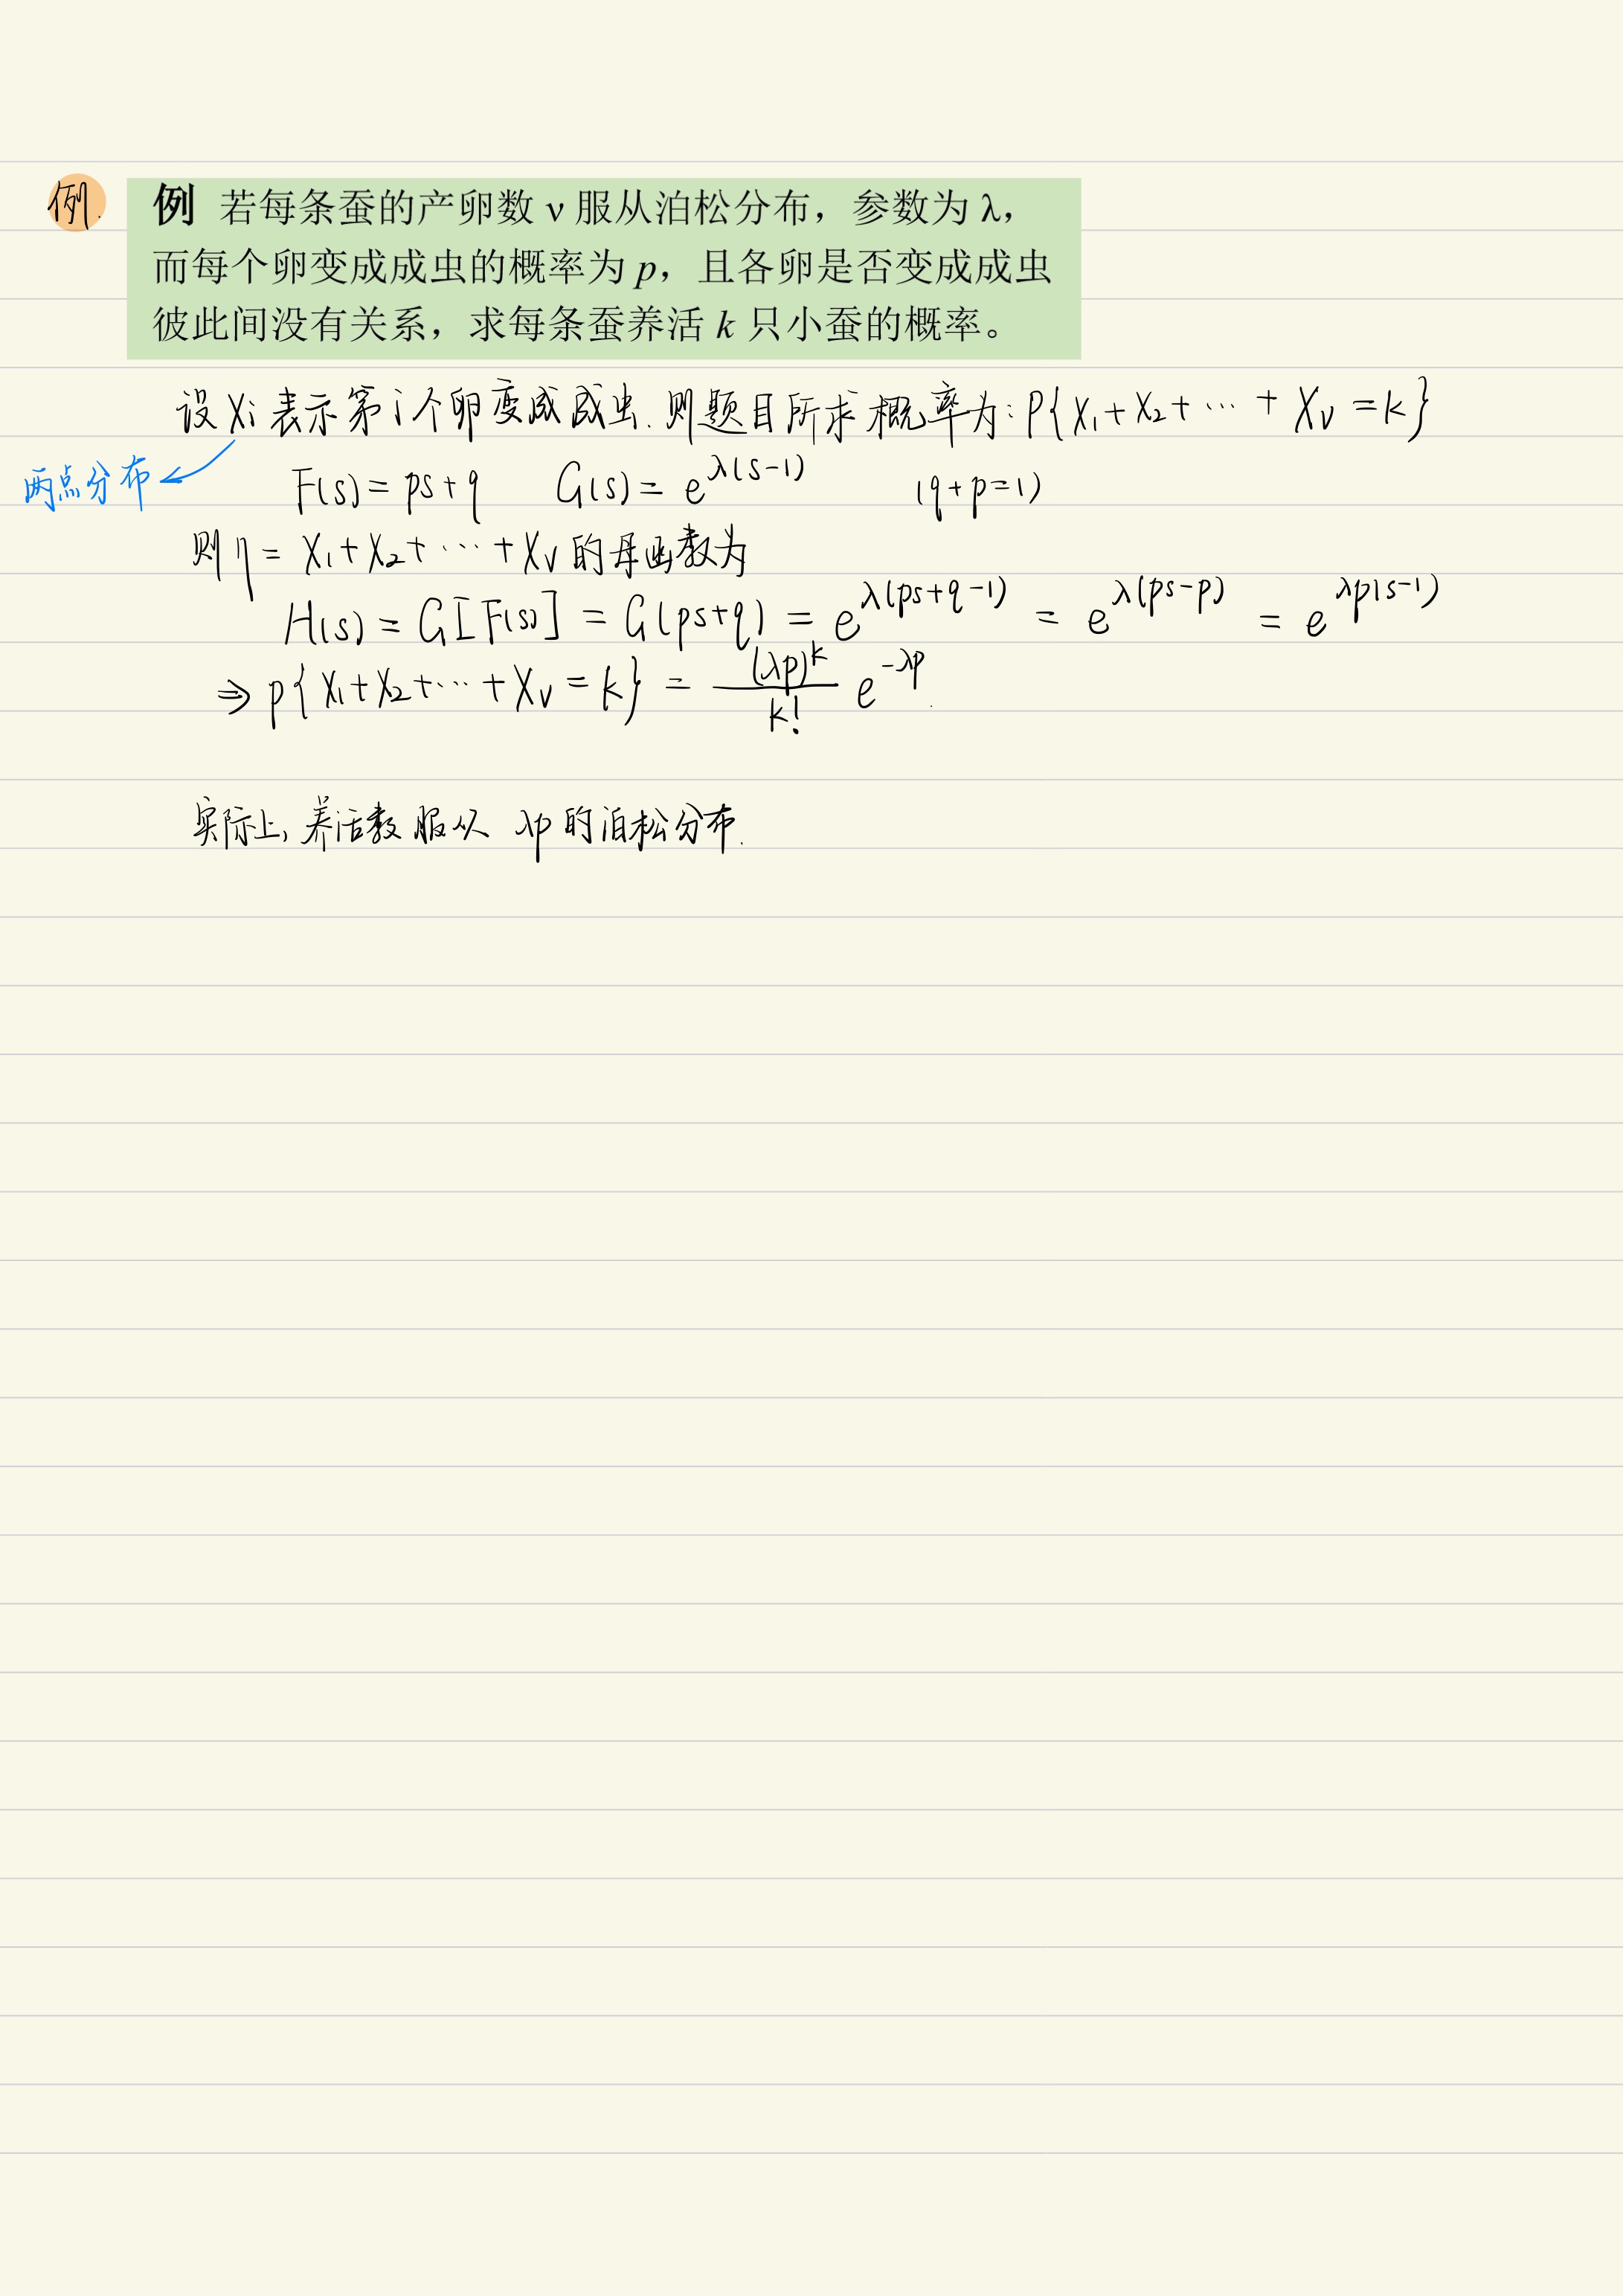 例.
例 若每条蚕的产卵数 ν 服从泊松分布，参数为 λ，
而每个卵变成成虫的概率为 p，且各卵是否变成成虫
彼此间没有关系，求每条蚕养活 k 只小蚕的概率。
设 Xi 表示第 i 个卵变成成虫. 则题目所求概率为: P{X₁+X₂+⋯+Xᵥ=k}
两点分布
F(s)=ps+q G(s)=e^{λ(s-1)} (q+p=1)
则 η=X₁+X₂+⋯+Xᵥ 的母函数为
H(s)=G[F(s)]=G(ps+q)=e^{λ(ps+q-1)}=e^{λ(ps-p)}=e^{λp(s-1)}
⇒ p{X₁+X₂+⋯+Xᵥ=k}=\frac{(λp)^k}{k!} e^{-λp}.
实际上, 养活数服从 λp 的泊松分布.